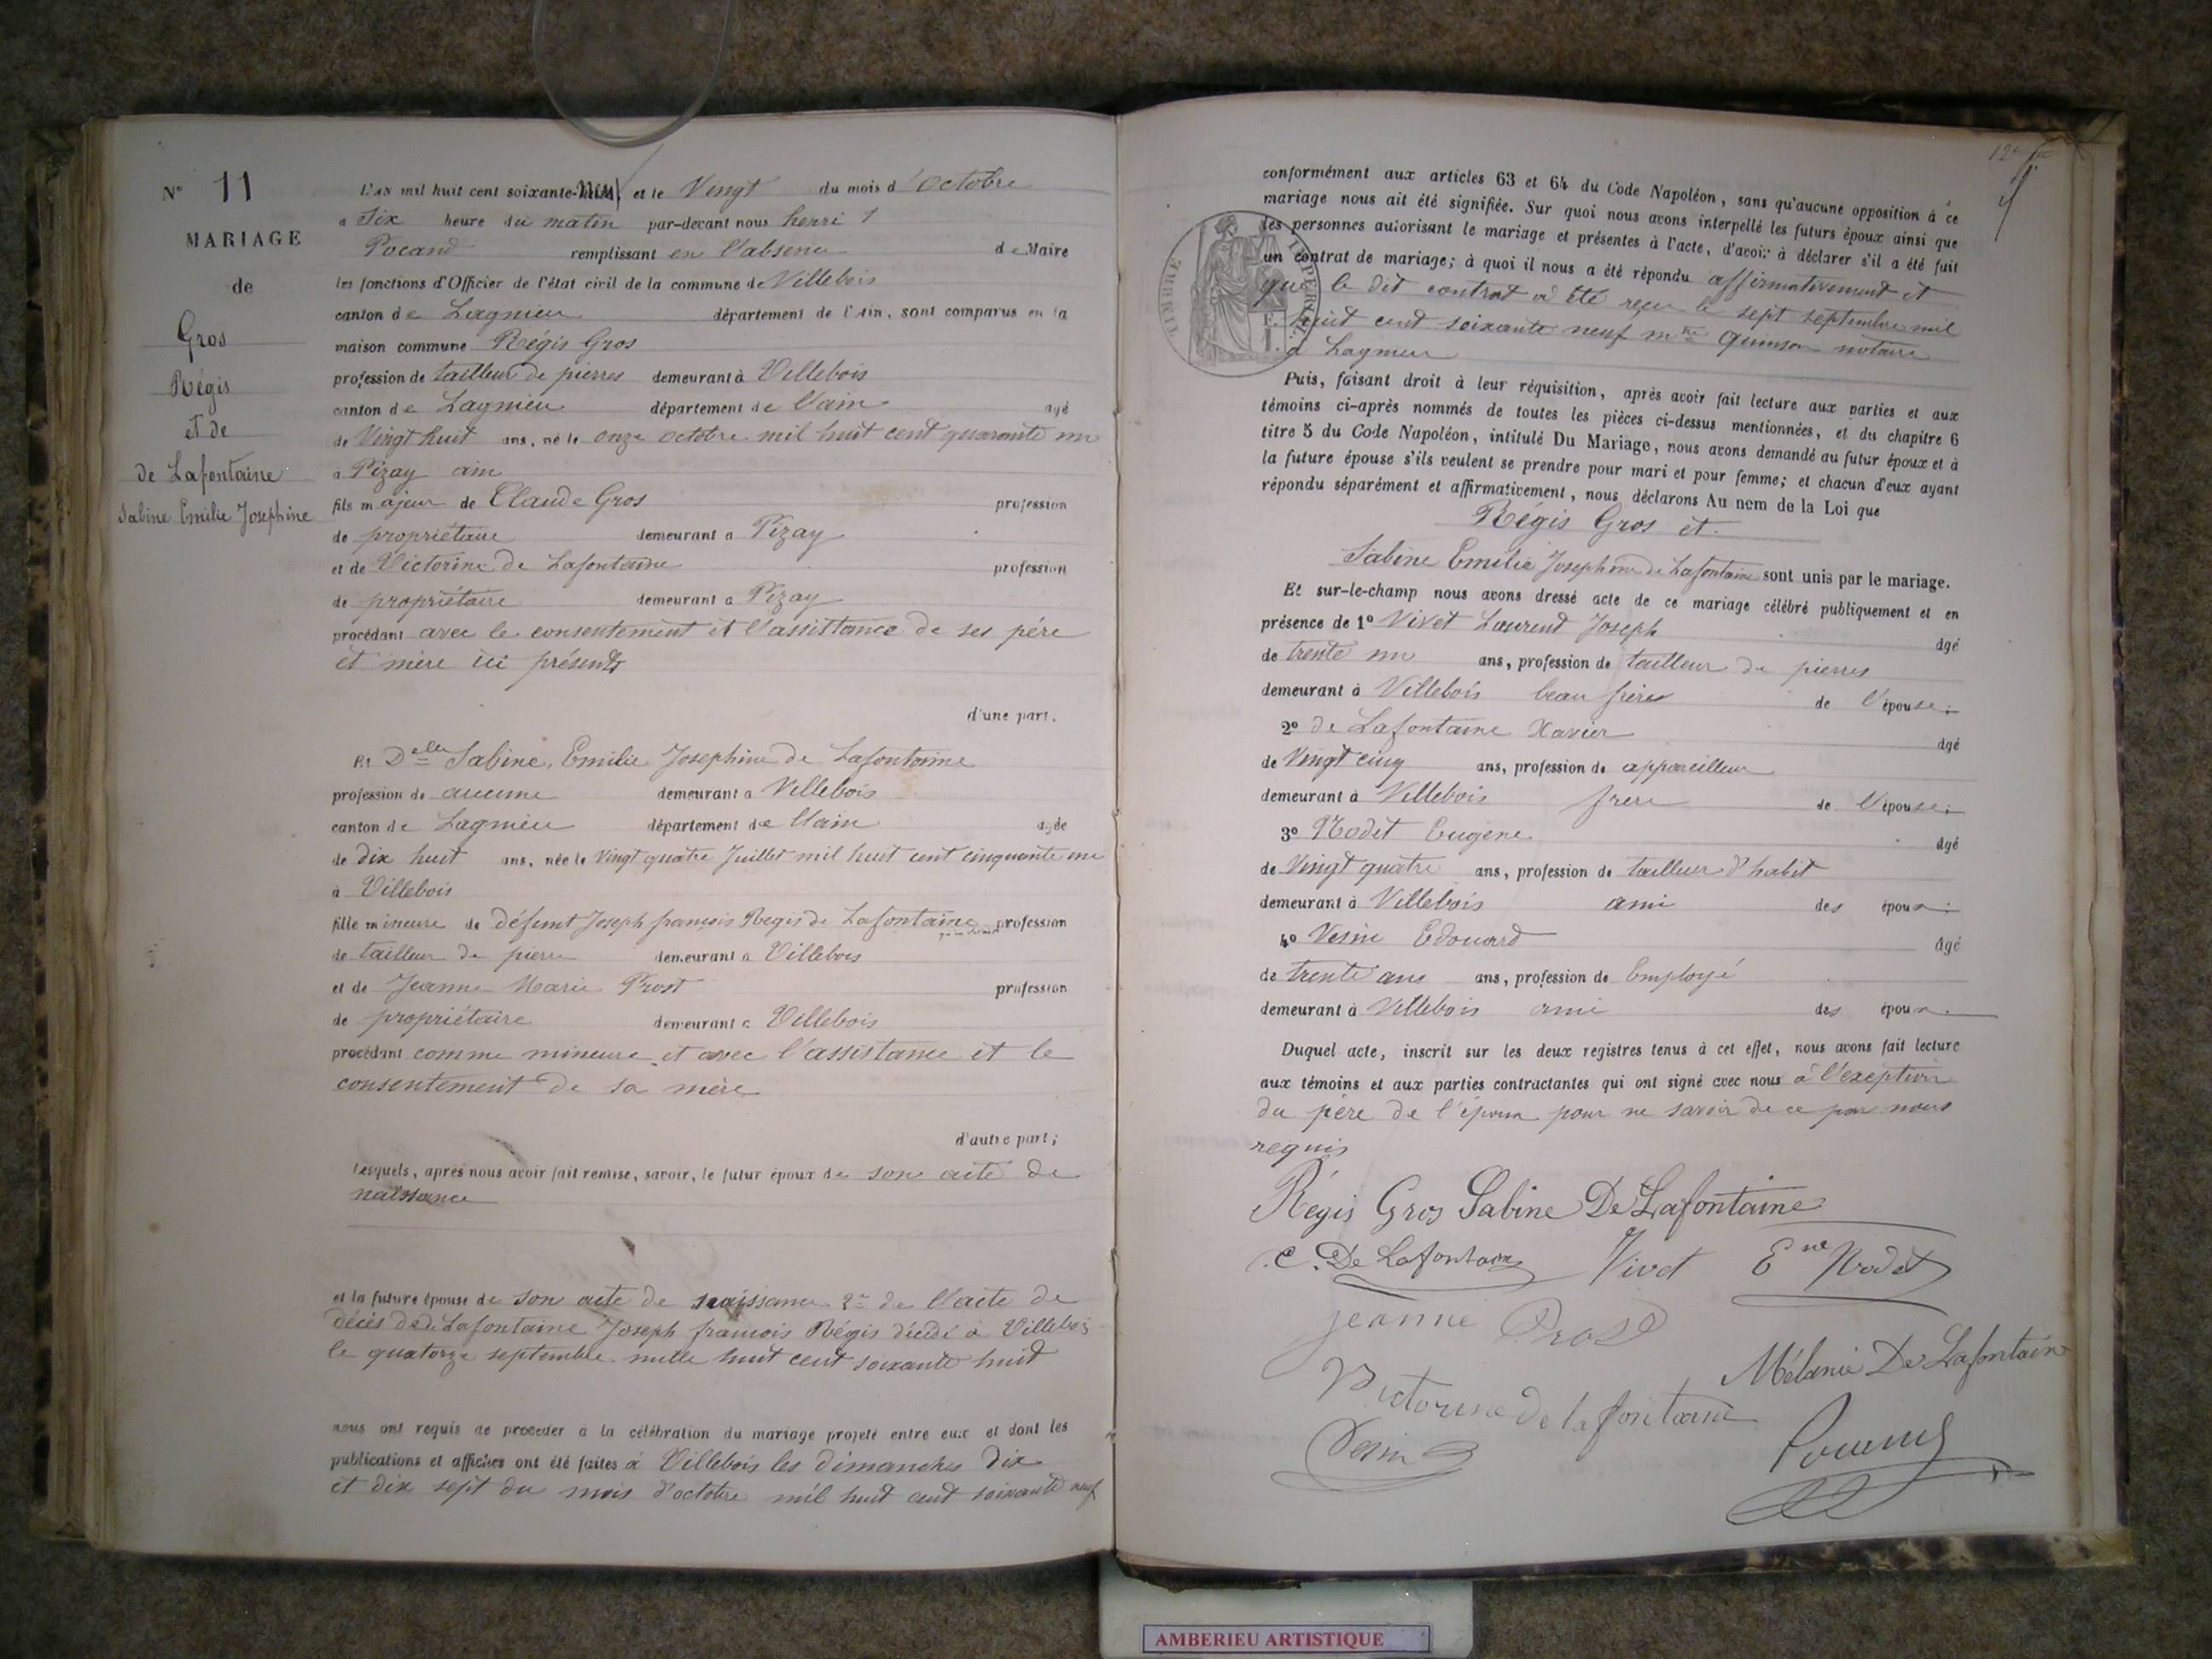 N° 11
MARIAGE
de
Gros
Régis
et de
de Lafontaine
Sabine Emilie Josephine
L'an mil huit cent soixante-neuf, et le Vingt du mois d'octobre
a Six heure du matin par-devant nous henri
Pocand remplissant en l'absence de Maire
les fonctions d'Officier de l'état civil de la commune de Villebois
canton de Lagnieu département de l'Ain, sont comparus en la
maison commune Régis Gros
profession de tailleur de pierres demeurant à Villebois
canton de Lagnieu département de l'ain agé
de Vingt huit ans, né le onze octobre mil huit cent quarante un
a Pizay ain
fils majeur de Claude Gros profession
de propriétaire demeurant a Pizay
et de Victorine de Lafontaine profession
de propriétaire demeurant a Pizay
procédant avec le consentement et l'assistance de ses pére
et mère ici présents
d'une part.
Et Delle Sabine, Emilie Josephine de Lafontaine
profession de aucune demeurant a Villebois
canton de Lagnieu département de l'ain agée
de dix huit ans, née le Vingt quatre Juillet mil huit cent cinquante un
à Villebois
fille mineure de défunt Joseph françois Regis de Lafontaine profession
de tailleur de pierre demeurant a Villebois
et de Jeanne Marie Prost profession
de propriétaire demeurant a Villebois
procédant comme mineure et avec l'assistance et le
consentement de sa mère
d'autre part;
Lesquels, après nous avoir fait remise, savoir, le futur époux de son acte de
naissance
et la future épouse de son acte de naissance 2° de l'acte de
décès de de Lafontaine Joseph francois Régis décédé à Villebois
le quatorze septembre mille huit cent soixante huit
nous ont requis de procéder à la célébration du mariage projeté entre eux et dont les
publications et affiches ont été faites à Villebois les dimanches dix
et dix sept du mois d'octobre mil huit cent soixante neuf
TIMBRE IMPERIAL
conformément aux articles 63 et 64 du Code Napoléon, sans qu'aucune opposition à ce
mariage nous ait été signifiée. Sur quoi nous avons interpellé les futurs époux ainsi que
les personnes autorisant le mariage et présentes à l'acte, d'avoir à déclarer s'il a été fait
un contrat de mariage; à quoi il nous a été répondu affirmativement et
que le dit contrat a été reçu le sept septembre mil
huit cent soixante neuf mtre quinson notaire
a Lagnieu
Puis, faisant droit à leur réquisition, après avoir fait lecture aux parties et aux
témoins ci-après nommés de toutes les pièces ci-dessus mentionnées, et du chapitre 6
titre 5 du Code Napoléon, intitulé Du Mariage, nous avons demandé au futur époux et à
la future épouse s'ils veulent se prendre pour mari et pour femme; et chacun d'eux ayant
répondu séparément et affirmativement, nous déclarons Au nom de la Loi que
Régis Gros et
Sabine Emilie Josephine de Lafontaine sont unis par le mariage.
Et sur-le-champ nous avons dressé acte de ce mariage célébré publiquement et en
présence de 1° Vivet Laurent Joseph âgé
de trente un ans, profession de tailleur de pierres
demeurant à Villebois beau frère de l'épouse;
2° de Lafontaine Xavier âgé
de Vingt cinq ans, profession de appareilleur
demeurant à Villebois frere de l'épouse;
3° Nodet Eugene âgé
de Vingt quatre ans, profession de tailleur d'habit
demeurant à Villebois ami des époux;
4° Vesin Edouard âgé
de trente ans ans, profession de Employé
demeurant à Villebois ami des époux.
Duquel acte, inscrit sur les deux registres tenus à cet effet, nous avons fait lecture
aux témoins et aux parties contractantes qui ont signé avec nous à l'exeption
du père de l'époux pour ne savoir de ce par nous
requis
Régis Gros Sabine De Lafontaine
De Lafontaine Vivet Ene Nodet
jeanne Prost
Mélanie De Lafontaine
Victorine de lafontaine
Vesin
AMBERIEU ARTISTIQUE